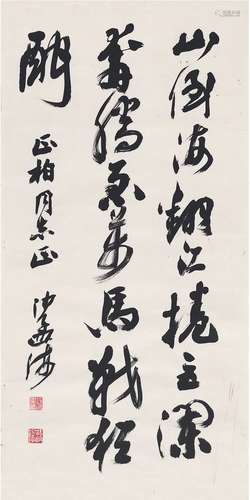 山倒海翻江捲巨瀾
奔騰急萬馬戰犹
酣
正柏同志正
沙孟海